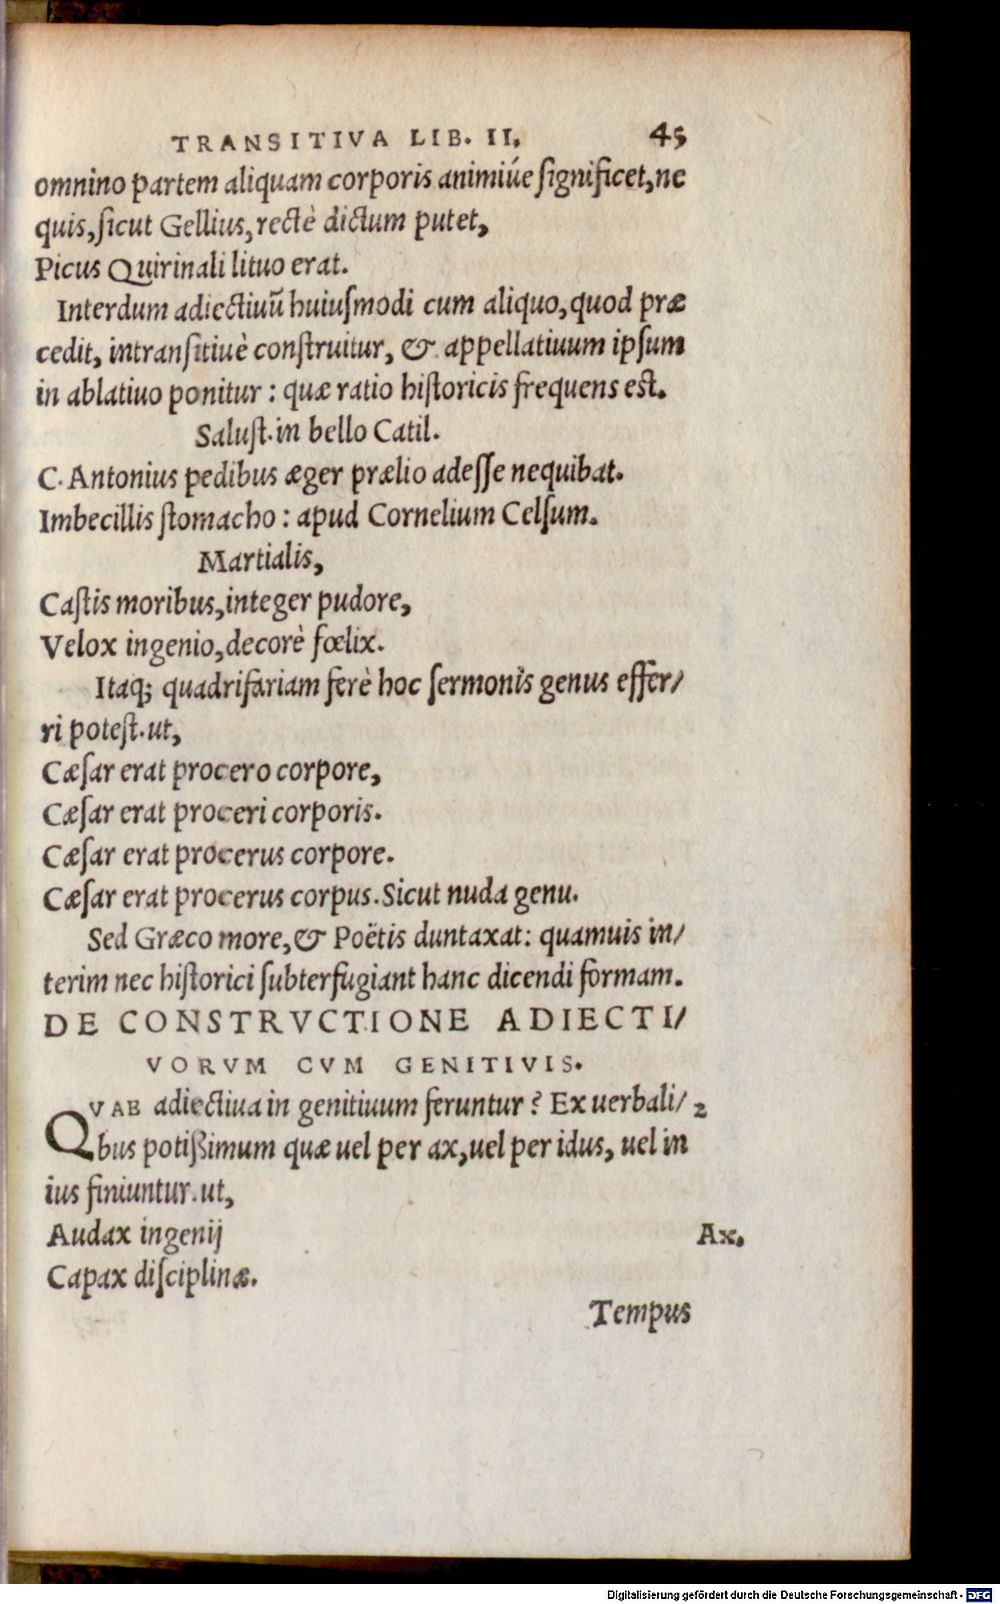 TRANSITIVA LIB. II, 45
omnino partem aliquam corporis animiúe ſignificet, ne
quis, ſicut Gellius, rectè dictum putet,
Picus Quirinali lituo erat.
Interdum adiectiuũ huiuſmodi cum aliquo, quod præ
cedit, intranſitiuè conſtruitur, & appellatiuum ipſum
in ablatiuo ponitur : quæ ratio hiſtoricis frequens est.
Saluſt. in bello Catil.
C. Antonius pedibus æger prælio adeſſe nequibat.
Imbecillis ſtomacho : apud Cornelium Celſum.
Martialis,
Caſtis moribus, integer pudore,
Velox ingenio, decorè fœlix.
Itaq; quadrifariam ferè hoc ſermonis genus effer/
ri poteſt. ut,
Cæſar erat procero corpore,
Cæſar erat proceri corporis.
Cæſar erat procerus corpore.
Cæſar erat procerus corpus. Sicut nuda genu.
Sed Græco more, & Poëtis duntaxat: quamuis in/
terim nec hiſtorici ſubterfugiant hanc dicendi formam.
DE CONSTRVCTIONE ADIECTI/
VORVM CVM GENITIVIS.
QVAE adiectiua in genitiuum feruntur ? Ex uerbali/ 2
bus potißimum quæ uel per ax, uel per idus, uel in
ius finiuntur. ut,
Audax ingenij Ax.
Capax diſciplinæ.
Tempus
Digitalisierung gefördert durch die Deutsche Forschungsgemeinschaft - DFG